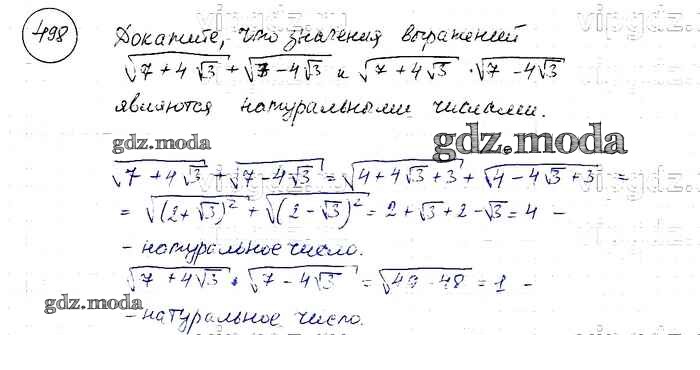 498
Докажите, что значения выражений
√(7 + 4√3) + √(7 - 4√3) и √(7 + 4√3) · √(7 - 4√3)
являются натуральными числами.
gdz.moda
gdz.moda
√(7 + 4√3) + √(7 - 4√3) = √(4 + 4√3 + 3) + √(4 - 4√3 + 3) =
= √((2 + √3)²) + √((2 - √3)²) = 2 + √3 + 2 - √3 = 4 -
- натуральное число.
√(7 + 4√3) · √(7 - 4√3) = √(49 - 48) = 1 -
gdz.moda
- натуральное число.